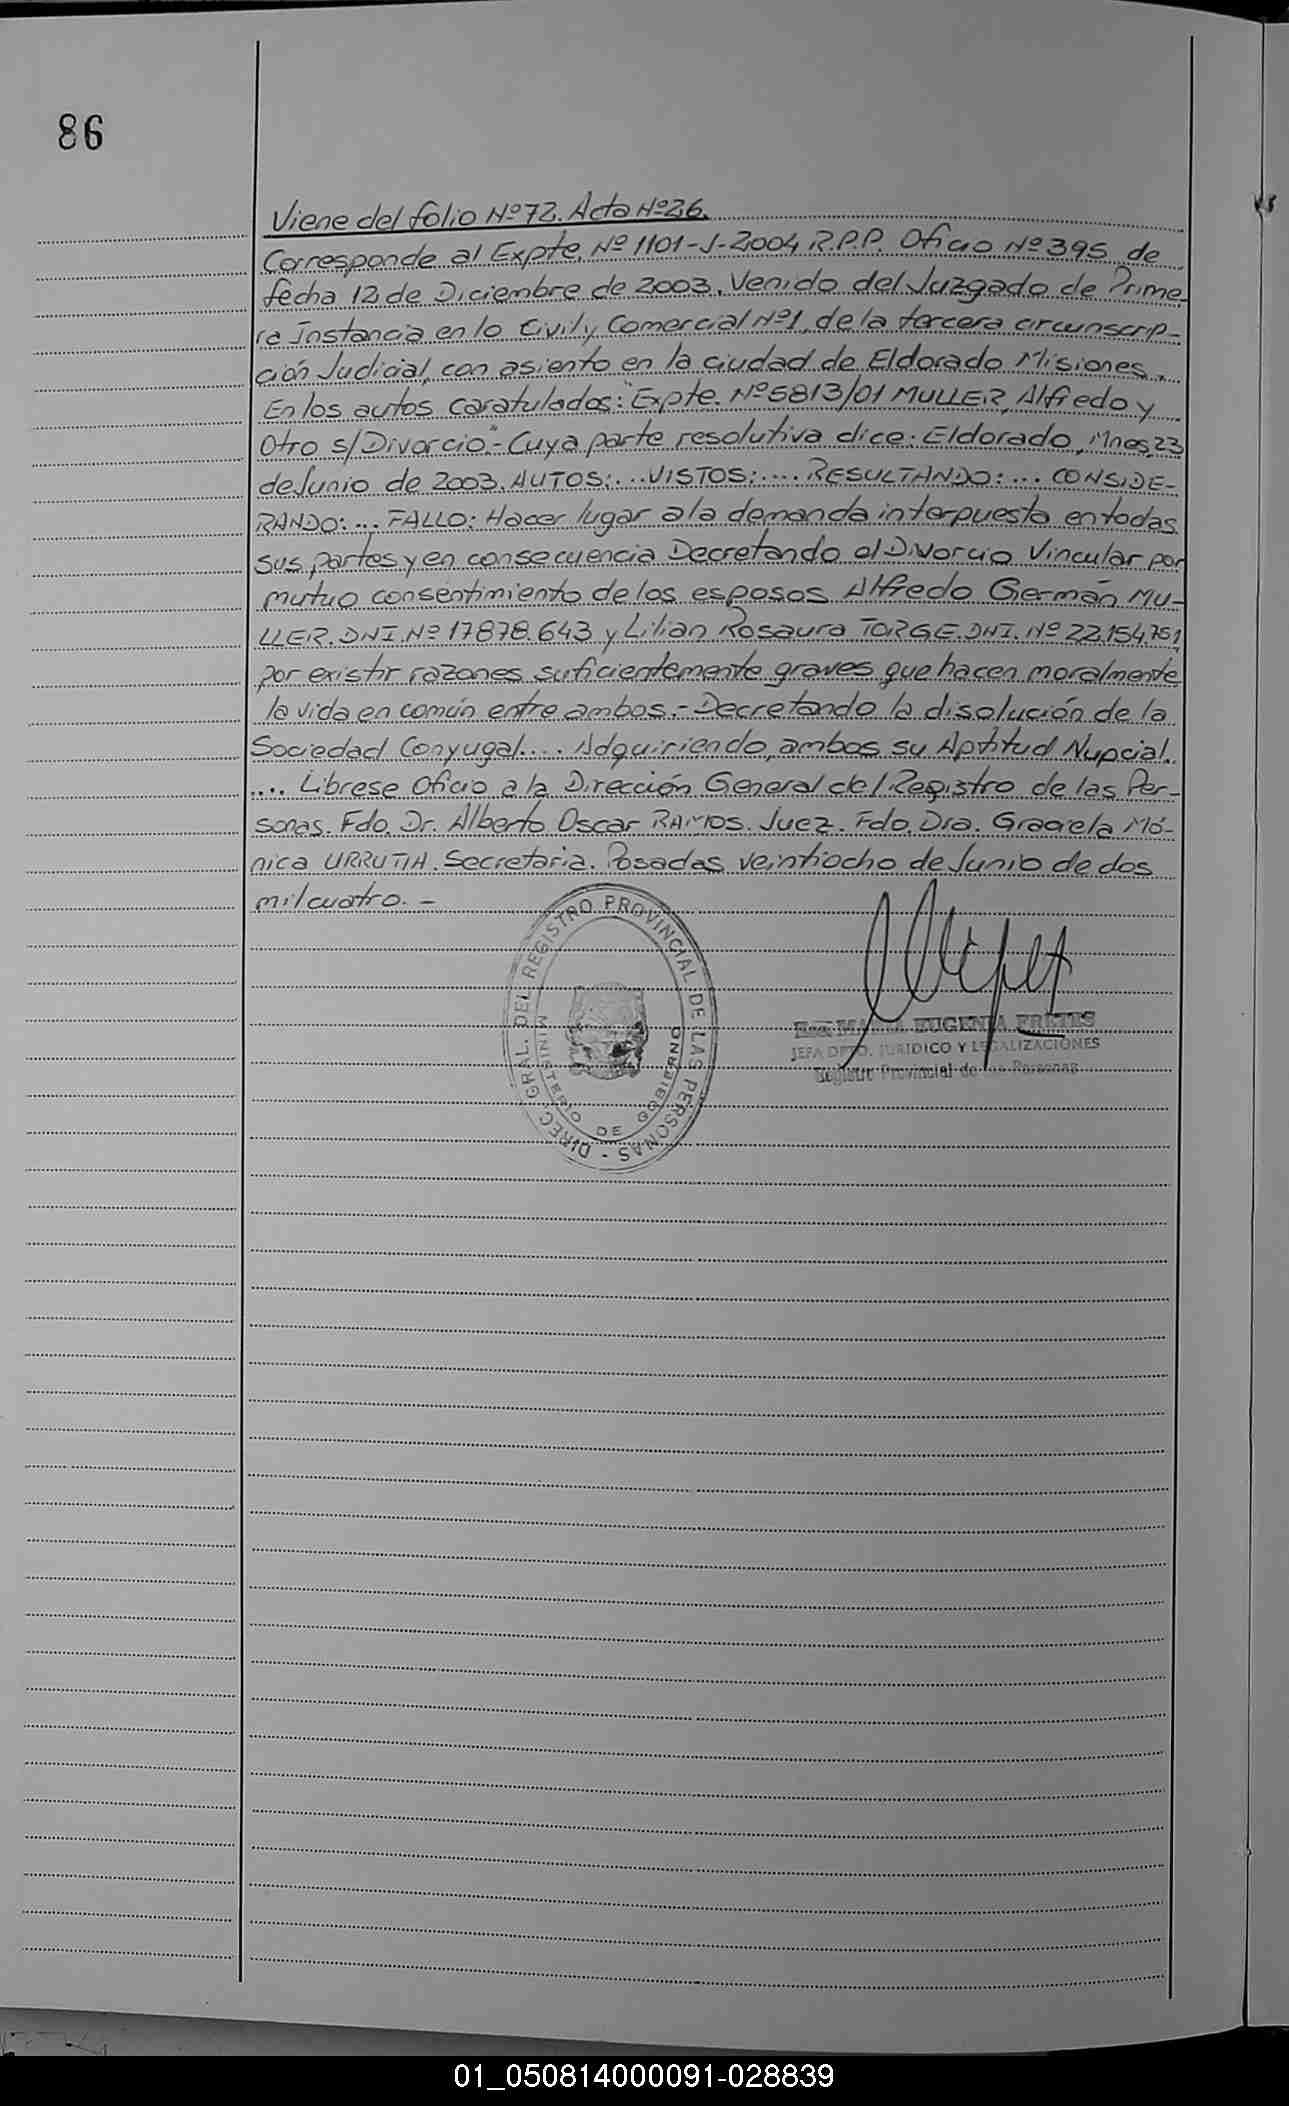 86
Viene del folio Nº72. Acta Nº26.
Corresponde al Expte. Nº 1101-J-2004 R.P.P. Oficio Nº 395 de
fecha 12 de Diciembre de 2003. Venido del Juzgado de Prime-
ra Instancia en lo Civil y Comercial Nº1, de la tercera circunscrip-
ción Judicial, con asiento en la ciudad de Eldorado Misiones.
En los autos caratulados: "Expte. Nº 5813/01 MULLER, Alfredo y
Otro s/Divorcio".- Cuya parte resolutiva dice: Eldorado, Mnes, 23
de Junio de 2003. AUTOS:... VISTOS:.... RESULTANDO:... CONSIDE-
RANDO:... FALLO: Hacer lugar a la demanda interpuesta en todas
sus partes y en consecuencia Decretando el Divorcio Vincular por
mutuo consentimiento de los esposos Alfredo Germán MU-
LLER. DNI. Nº 17878.643 y Lilian Rosaura TORGE. DNI. Nº 22.154.751,
por existir razones suficientemente graves que hacen moralmente
la vida en común entre ambos.- Decretando la disolución de la
Sociedad Conyugal.... Adquiriendo, ambos su Aptitud Nupcial..
.... Librese Oficio a la Dirección General del Registro de las Per-
sonas. Fdo. Dr. Alberto Oscar RAMOS. Juez. Fdo. Dra. Graciela Mó-
nica URRUTIA. Secretaria. Posadas veintiocho de Junio de dos
mil cuatro. -
DIREC. GRAL. DEL REGISTRO PROVINCIAL DE LAS PERSONAS -
MINISTERIO DE GOBIERNO
MARIA EUGENIA FRETES
JEFA DPTO. JURIDICO Y LEGALIZACIONES
Registro Provincial de las Personas
01_050814000091-028839